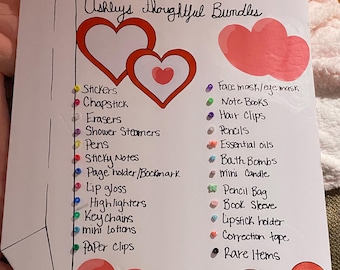 Ashleys Thoughtful Bundles
Stickers
Chapstick
Erasers
Shower Steamers
Pens
Sticky Notes
Page holder/Bookmark
Lip gloss
Highlighters
Keychains
mini Lotions
Paper clips
Face mask/eye mask
Note Books
Hair Clips
Pencils
Essential oils
Bath Bombs
mini Candle
Pencil Bag
Book Sleeve
Lipstick holder
Correction tape
Rare Items